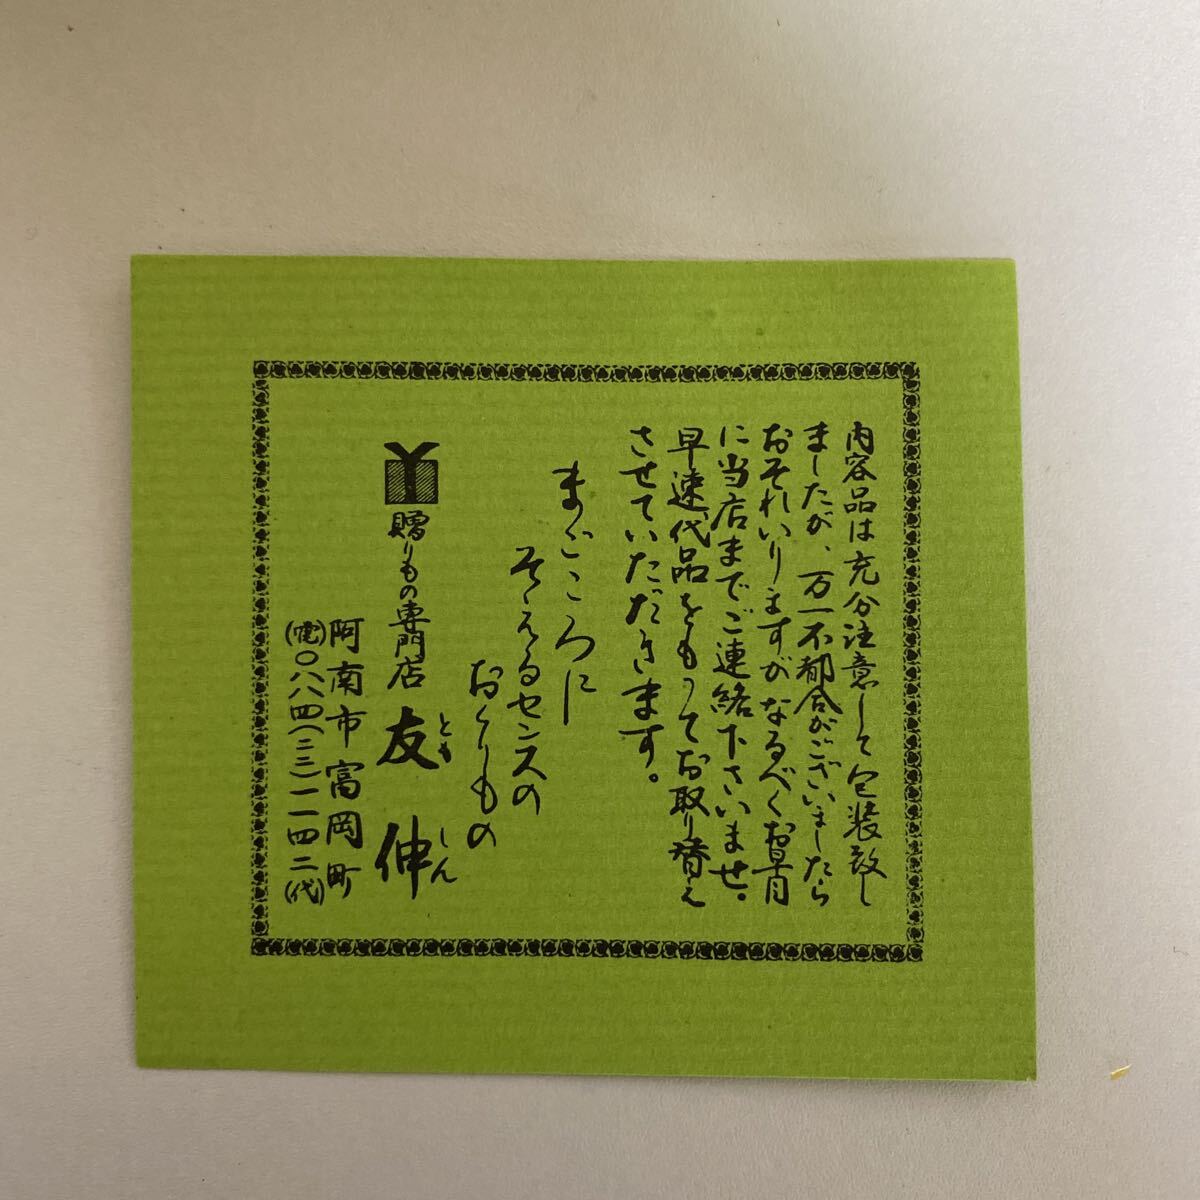 内容品は充分注意して包装致し
ましたが、万一不都合がございましたら
おそれいりますがなるべくお早目
に当店までご連絡下さいませ。
早速代品をもってお取り替え
させていただきます。
まごころに
そえるセンスの
おくりもの
贈りもの専門店 友伸
ともしん
阿南市富岡町
(電)〇八八四(二二)一一四二(代)